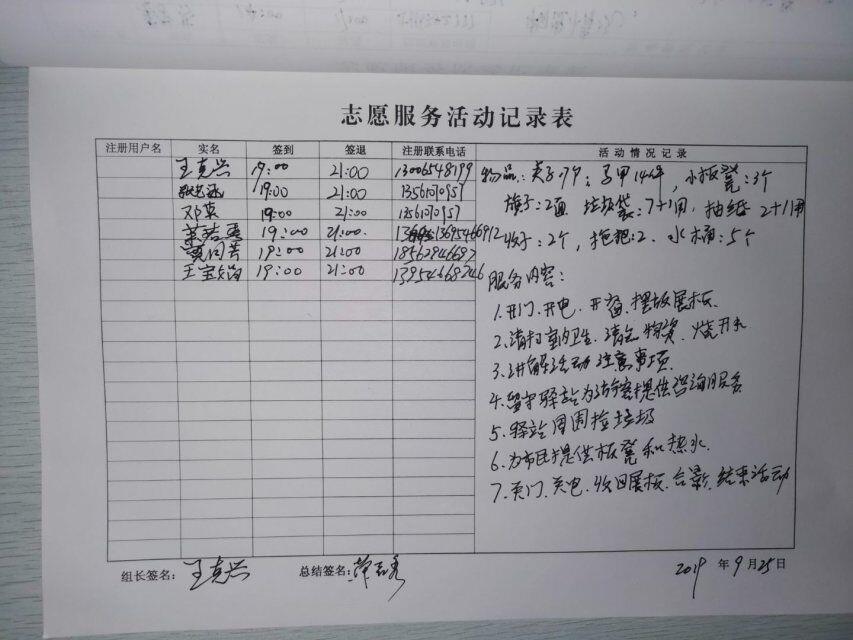 志愿服务活动记录表
注册用户名 实名 签到 签退 注册联系电话 活动情况记录
王克兴 19:00 21:00 13006548199
19:00 21:00 13561070957
邓 19:00 21:00 13561070957
19:00 21:00. 13695466912
19:00 21:00 18562946697
王宝 19:00 21:00 13954668746
物品: 夹子17个; 马甲14件, 小板凳:3个
旗子:2面 垃圾袋:7+1用, 抽纸2+1用
:2个, 拖把:2. 水桶:5个
服务内容:
1.开门.开电.开窗.摆放展板.
2.清扫室内卫生.清点物资.烧开水
3.讲解活动注意事项.
4.留守驿站为游客提供咨询服务
5.驿站周围捡垃圾
6.为市民提供板凳和热水.
7.关门.关电.收回展板.合影.结束活动
组长签名: 王克兴 总结签名: 2019年9月25日